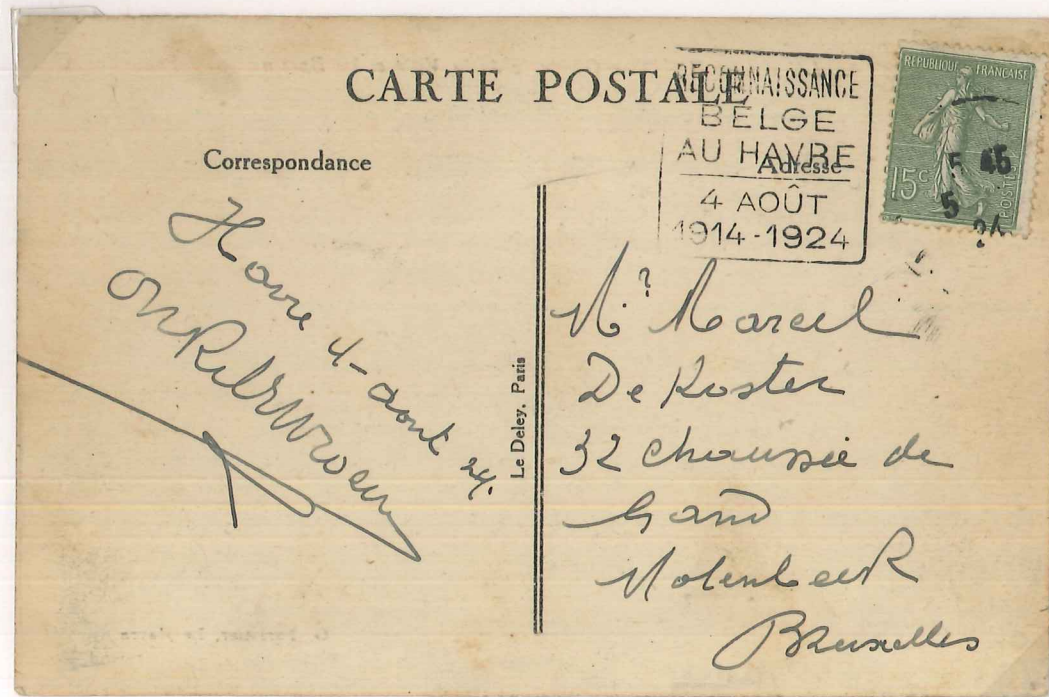 CARTE POSTALE
RECONNAISSANCE
BELGE
AU HAVRE
4 AOÛT
1914-1924
RÉPUBLIQUE FRANÇAISE
15c
POSTES
5 45
5
24
Correspondance
Adresse
Havre 4-aout 24.
Le Deley, Paris
Mr Marcel
De Koster
32 chaussée de
Gand
Molenbeek
Bruxelles